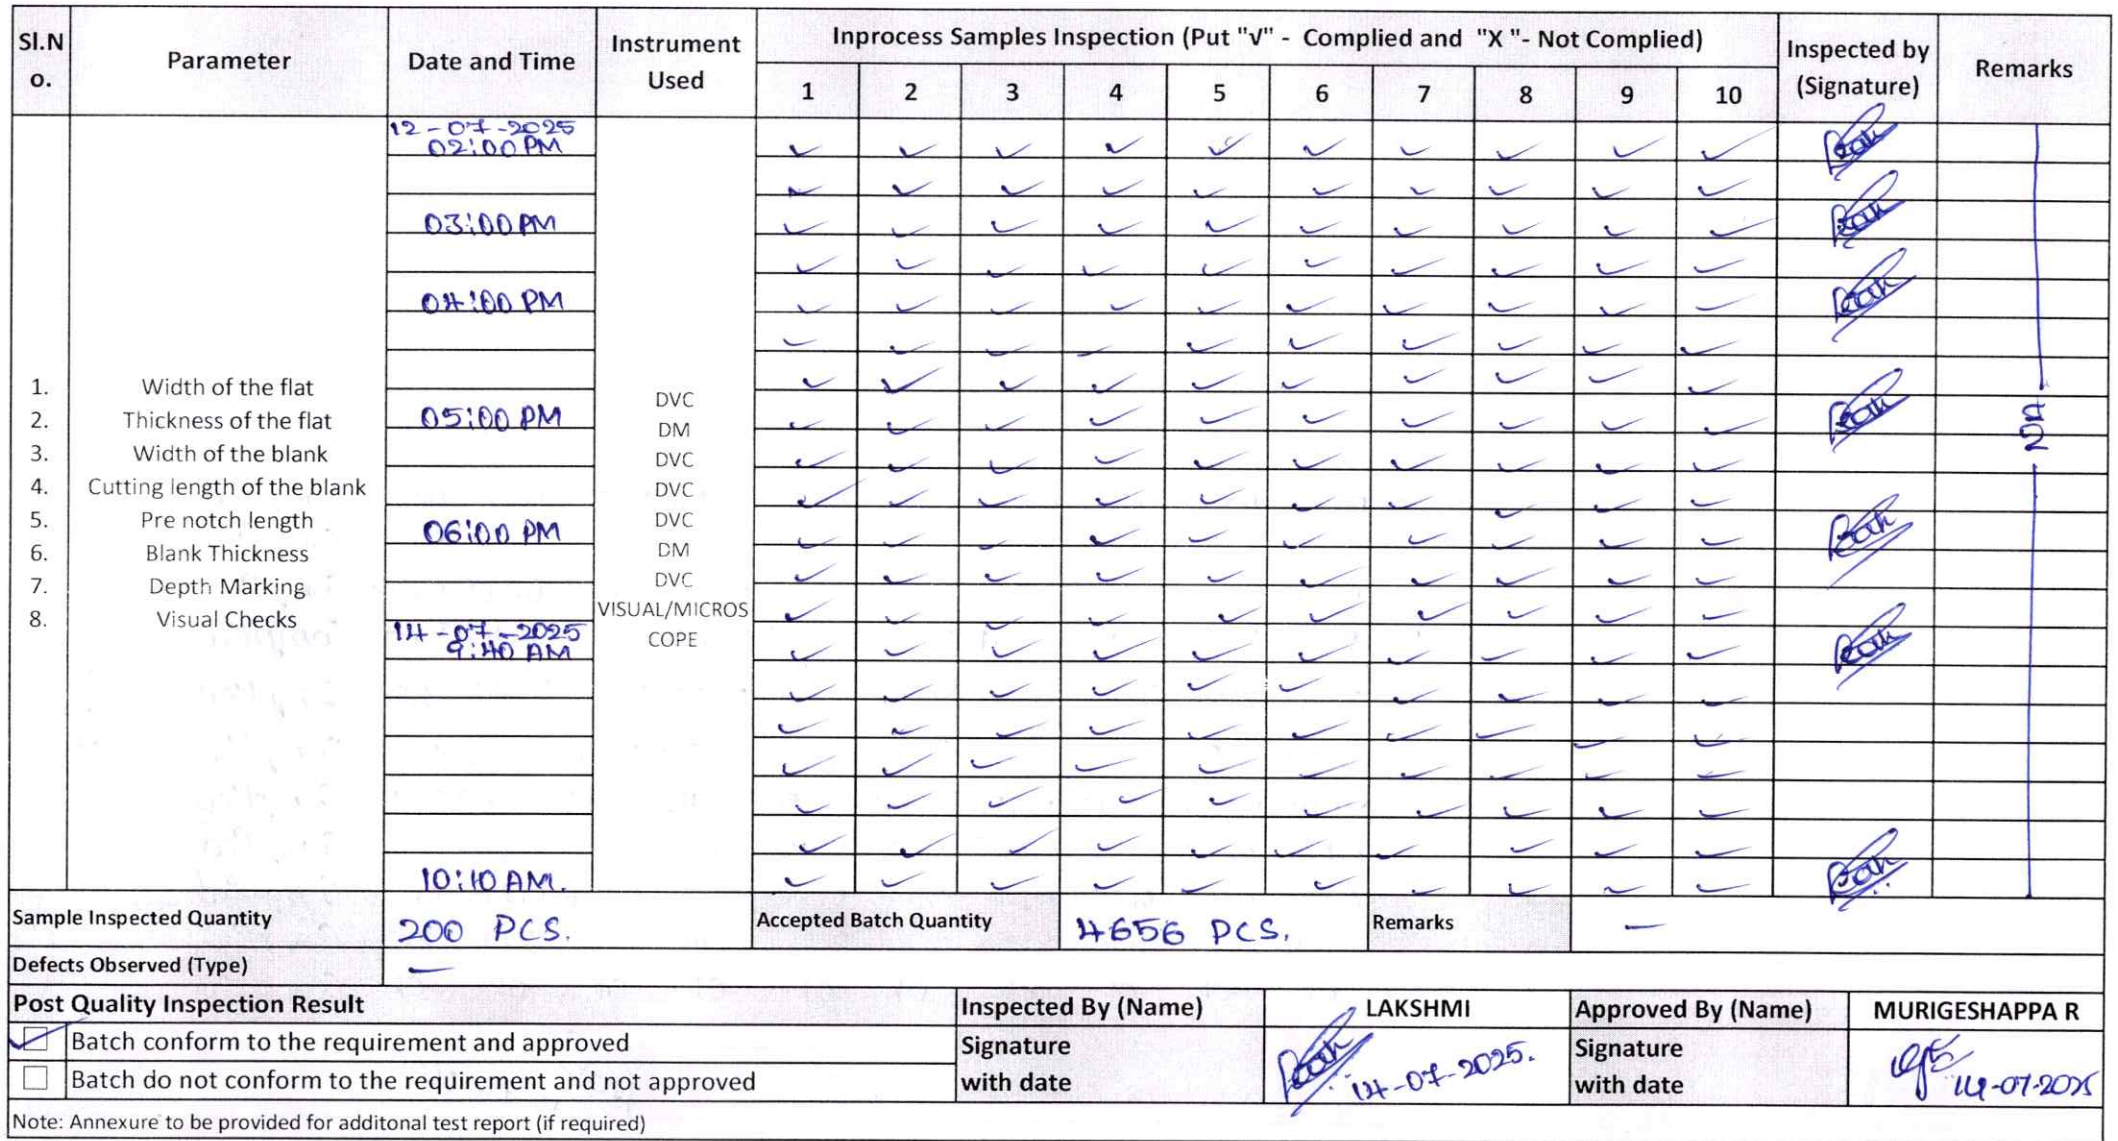 Sl.N
o.
Parameter
Date and Time
Instrument
Used
Inprocess Samples Inspection (Put "√" - Complied and "X "- Not Complied)
1 2 3 4 5 6 7 8 9 10
Inspected by
(Signature)
Remarks
12-07-2025
02:00 PM
✓ ✓ ✓ ✓ ✓ ✓ ✓ ✓ ✓ ✓
✓ ✓ ✓ ✓ ✓ ✓ ✓ ✓ ✓ ✓
03:00 PM ✓ ✓ ✓ ✓ ✓ ✓ ✓ ✓ ✓ ✓
✓ ✓ ✓ ✓ ✓ ✓ ✓ ✓ ✓ ✓
04:00 PM ✓ ✓ ✓ ✓ ✓ ✓ ✓ ✓ ✓ ✓
✓ ✓ ✓ ✓ ✓ ✓ ✓ ✓ ✓ ✓
✓ ✓ ✓ ✓ ✓ ✓ ✓ ✓ ✓ ✓
05:00 PM ✓ ✓ ✓ ✓ ✓ ✓ ✓ ✓ ✓ ✓
✓ ✓ ✓ ✓ ✓ ✓ ✓ ✓ ✓ ✓
✓ ✓ ✓ ✓ ✓ ✓ ✓ ✓ ✓ ✓
06:00 PM ✓ ✓ ✓ ✓ ✓ ✓ ✓ ✓ ✓ ✓
✓ ✓ ✓ ✓ ✓ ✓ ✓ ✓ ✓ ✓
✓ ✓ ✓ ✓ ✓ ✓ ✓ ✓ ✓ ✓
14-07-2025
9:40 AM
✓ ✓ ✓ ✓ ✓ ✓ ✓ ✓ ✓ ✓
✓ ✓ ✓ ✓ ✓ ✓ ✓ ✓ ✓ ✓
✓ ✓ ✓ ✓ ✓ ✓ ✓ ✓ ✓ ✓
✓ ✓ ✓ ✓ ✓ ✓ ✓ ✓ ✓ ✓
✓ ✓ ✓ ✓ ✓ ✓ ✓ ✓ ✓ ✓
✓ ✓ ✓ ✓ ✓ ✓ ✓ ✓ ✓ ✓
10:10 AM. ✓ ✓ ✓ ✓ ✓ ✓ ✓ ✓ ✓ ✓
1. Width of the flat
2. Thickness of the flat
3. Width of the blank
4. Cutting length of the blank
5. Pre notch length
6. Blank Thickness
7. Depth Marking
8. Visual Checks
DVC
DM
DVC
DVC
DVC
DM
DVC
VISUAL/MICROS
COPE
NA
Sample Inspected Quantity 200 PCS. Accepted Batch Quantity 4656 PCS. Remarks —
Defects Observed (Type) —
Post Quality Inspection Result
✓ Batch conform to the requirement and approved
Batch do not conform to the requirement and not approved
Inspected By (Name) LAKSHMI
Signature
with date
14-07-2025.
Approved By (Name) MURIGESHAPPA R
Signature
with date
14-07-2025
Note: Annexure to be provided for additonal test report (if required)